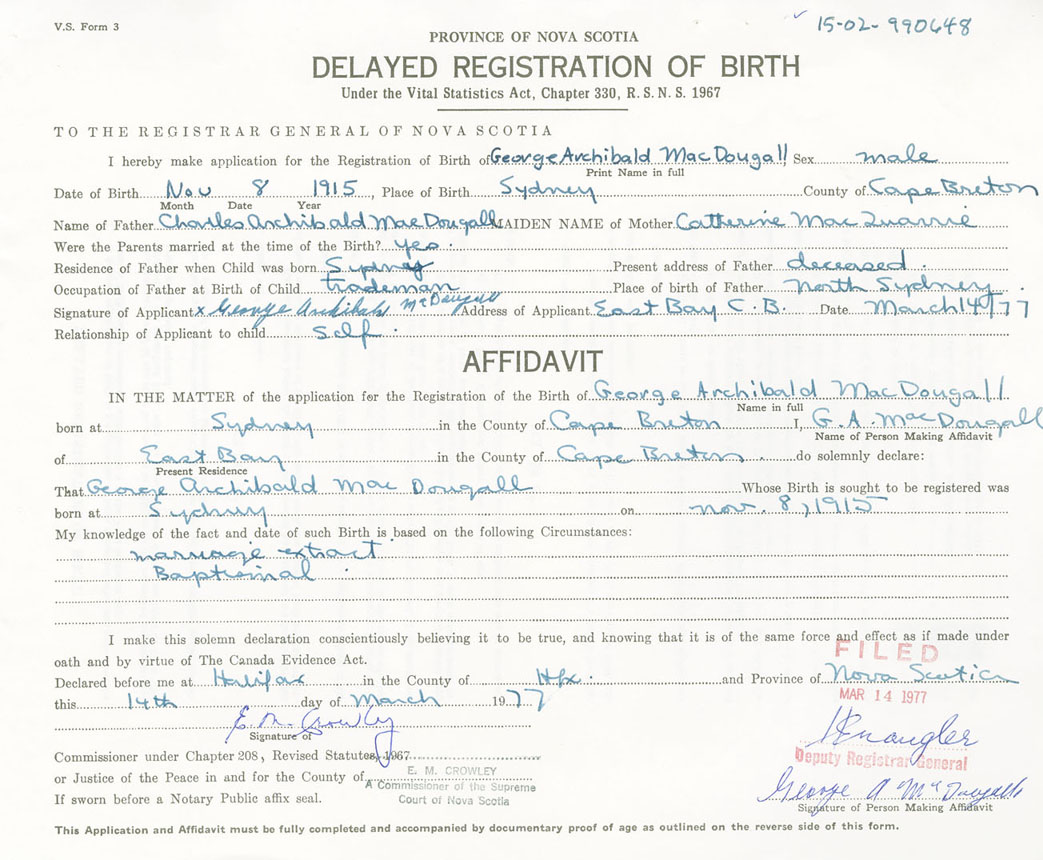 V.S. Form 3
15-02-990648
PROVINCE OF NOVA SCOTIA
DELAYED REGISTRATION OF BIRTH
Under the Vital Statistics Act, Chapter 330, R.S.N.S. 1967
TO THE REGISTRAR GENERAL OF NOVA SCOTIA
I hereby make application for the Registration of Birth of George Archibald MacDougall Sex male
Print Name in full
Date of Birth Nov 8 1915, Place of Birth Sydney County of Cape Breton
Month Date Year
Name of Father Charles Archibald MacDougall MAIDEN NAME of Mother Catherine MacQuarrie
Were the Parents married at the time of the Birth? yes.
Residence of Father when Child was born Sydney Present address of Father deceased.
Occupation of Father at Birth of Child trademan Place of birth of Father North Sydney.
Signature of Applicant x George Archibald McDougall Address of Applicant East Bay C.B. Date March 14/77
Relationship of Applicant to child self.
AFFIDAVIT
IN THE MATTER of the application for the Registration of the Birth of George Archibald MacDougall
Name in full
born at Sydney in the County of Cape Breton I, G.A. MacDougall
Name of Person Making Affidavit
of East Bay in the County of Cape Breton do solemnly declare:
Present Residence
That George Archibald MacDougall Whose Birth is sought to be registered was
born at Sydney on Nov. 8, 1915
My knowledge of the fact and date of such Birth is based on the following Circumstances:
marriage extract
Baptismal
I make this solemn declaration conscientiously believing it to be true, and knowing that it is of the same force and effect as if made under
oath and by virtue of The Canada Evidence Act.
FILED
Declared before me at Halifax in the County of Hfx. and Province of Nova Scotia
this 14th day of March 1977
MAR 14 1977
E. M. Crowley
Signature of
Commissioner under Chapter 208, Revised Statutes, 1967.
Deputy Registrar General
or Justice of the Peace in and for the County of
E. M. CROWLEY
A Commissioner of the Supreme
Court of Nova Scotia
If sworn before a Notary Public affix seal.
George A McDougall
Signature of Person Making Affidavit
This Application and Affidavit must be fully completed and accompanied by documentary proof of age as outlined on the reverse side of this form.